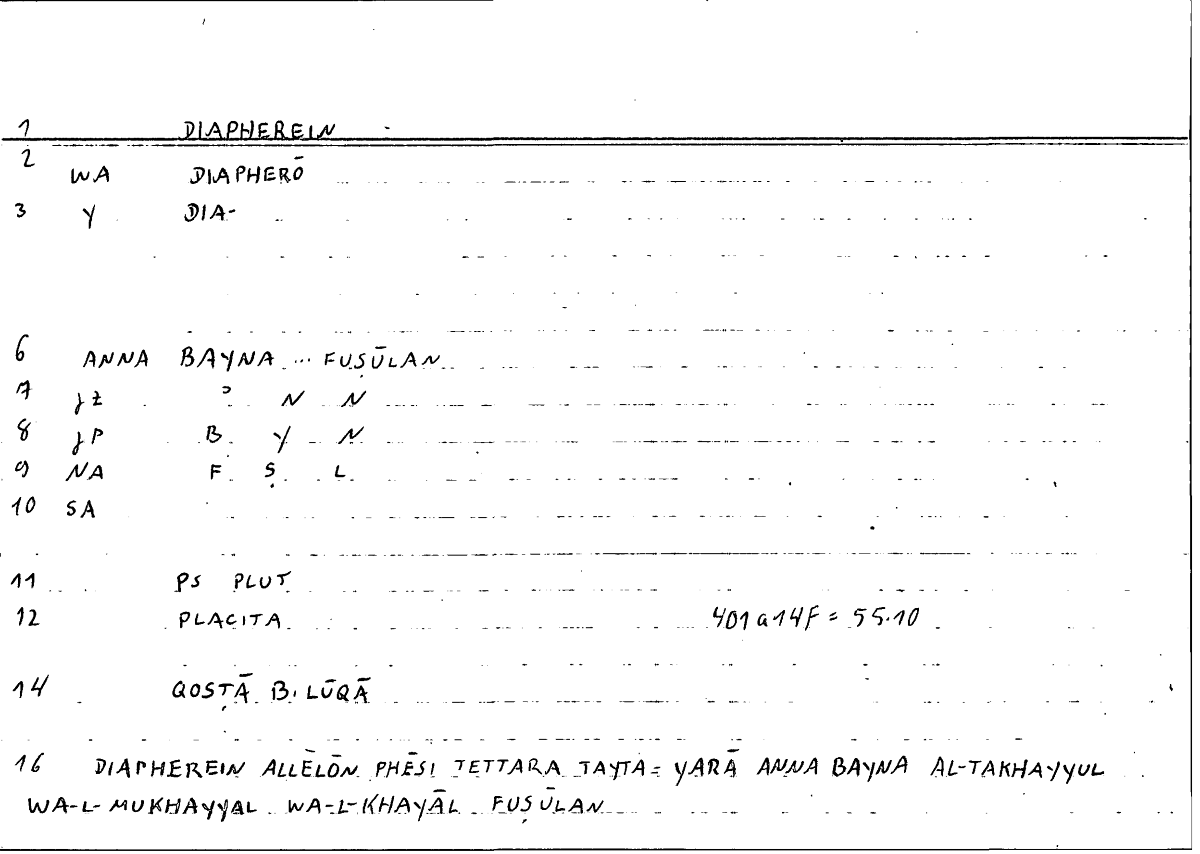 1 DIAPHEREIN
2 WA DIAPHERŌ
3 Y DIA-
6 ANNA BAYNA ... FUṢŪLAN
7 ɔ N N
8 B Y N
9 NA F Ṣ L
10 SA
11 PS PLUT
12 PLACITA 401a14F = 55.10
14 QOSṬĀ B. LŪQĀ
16 DIAPHEREIN ALLĒLŌN PHĒSI TETTARA TAYTA = YARĀ ANNA BAYNA AL-TAKHAYYUL
WA-L-MUKHAYYAL WA-L-KHAYĀL FUṢŪLAN